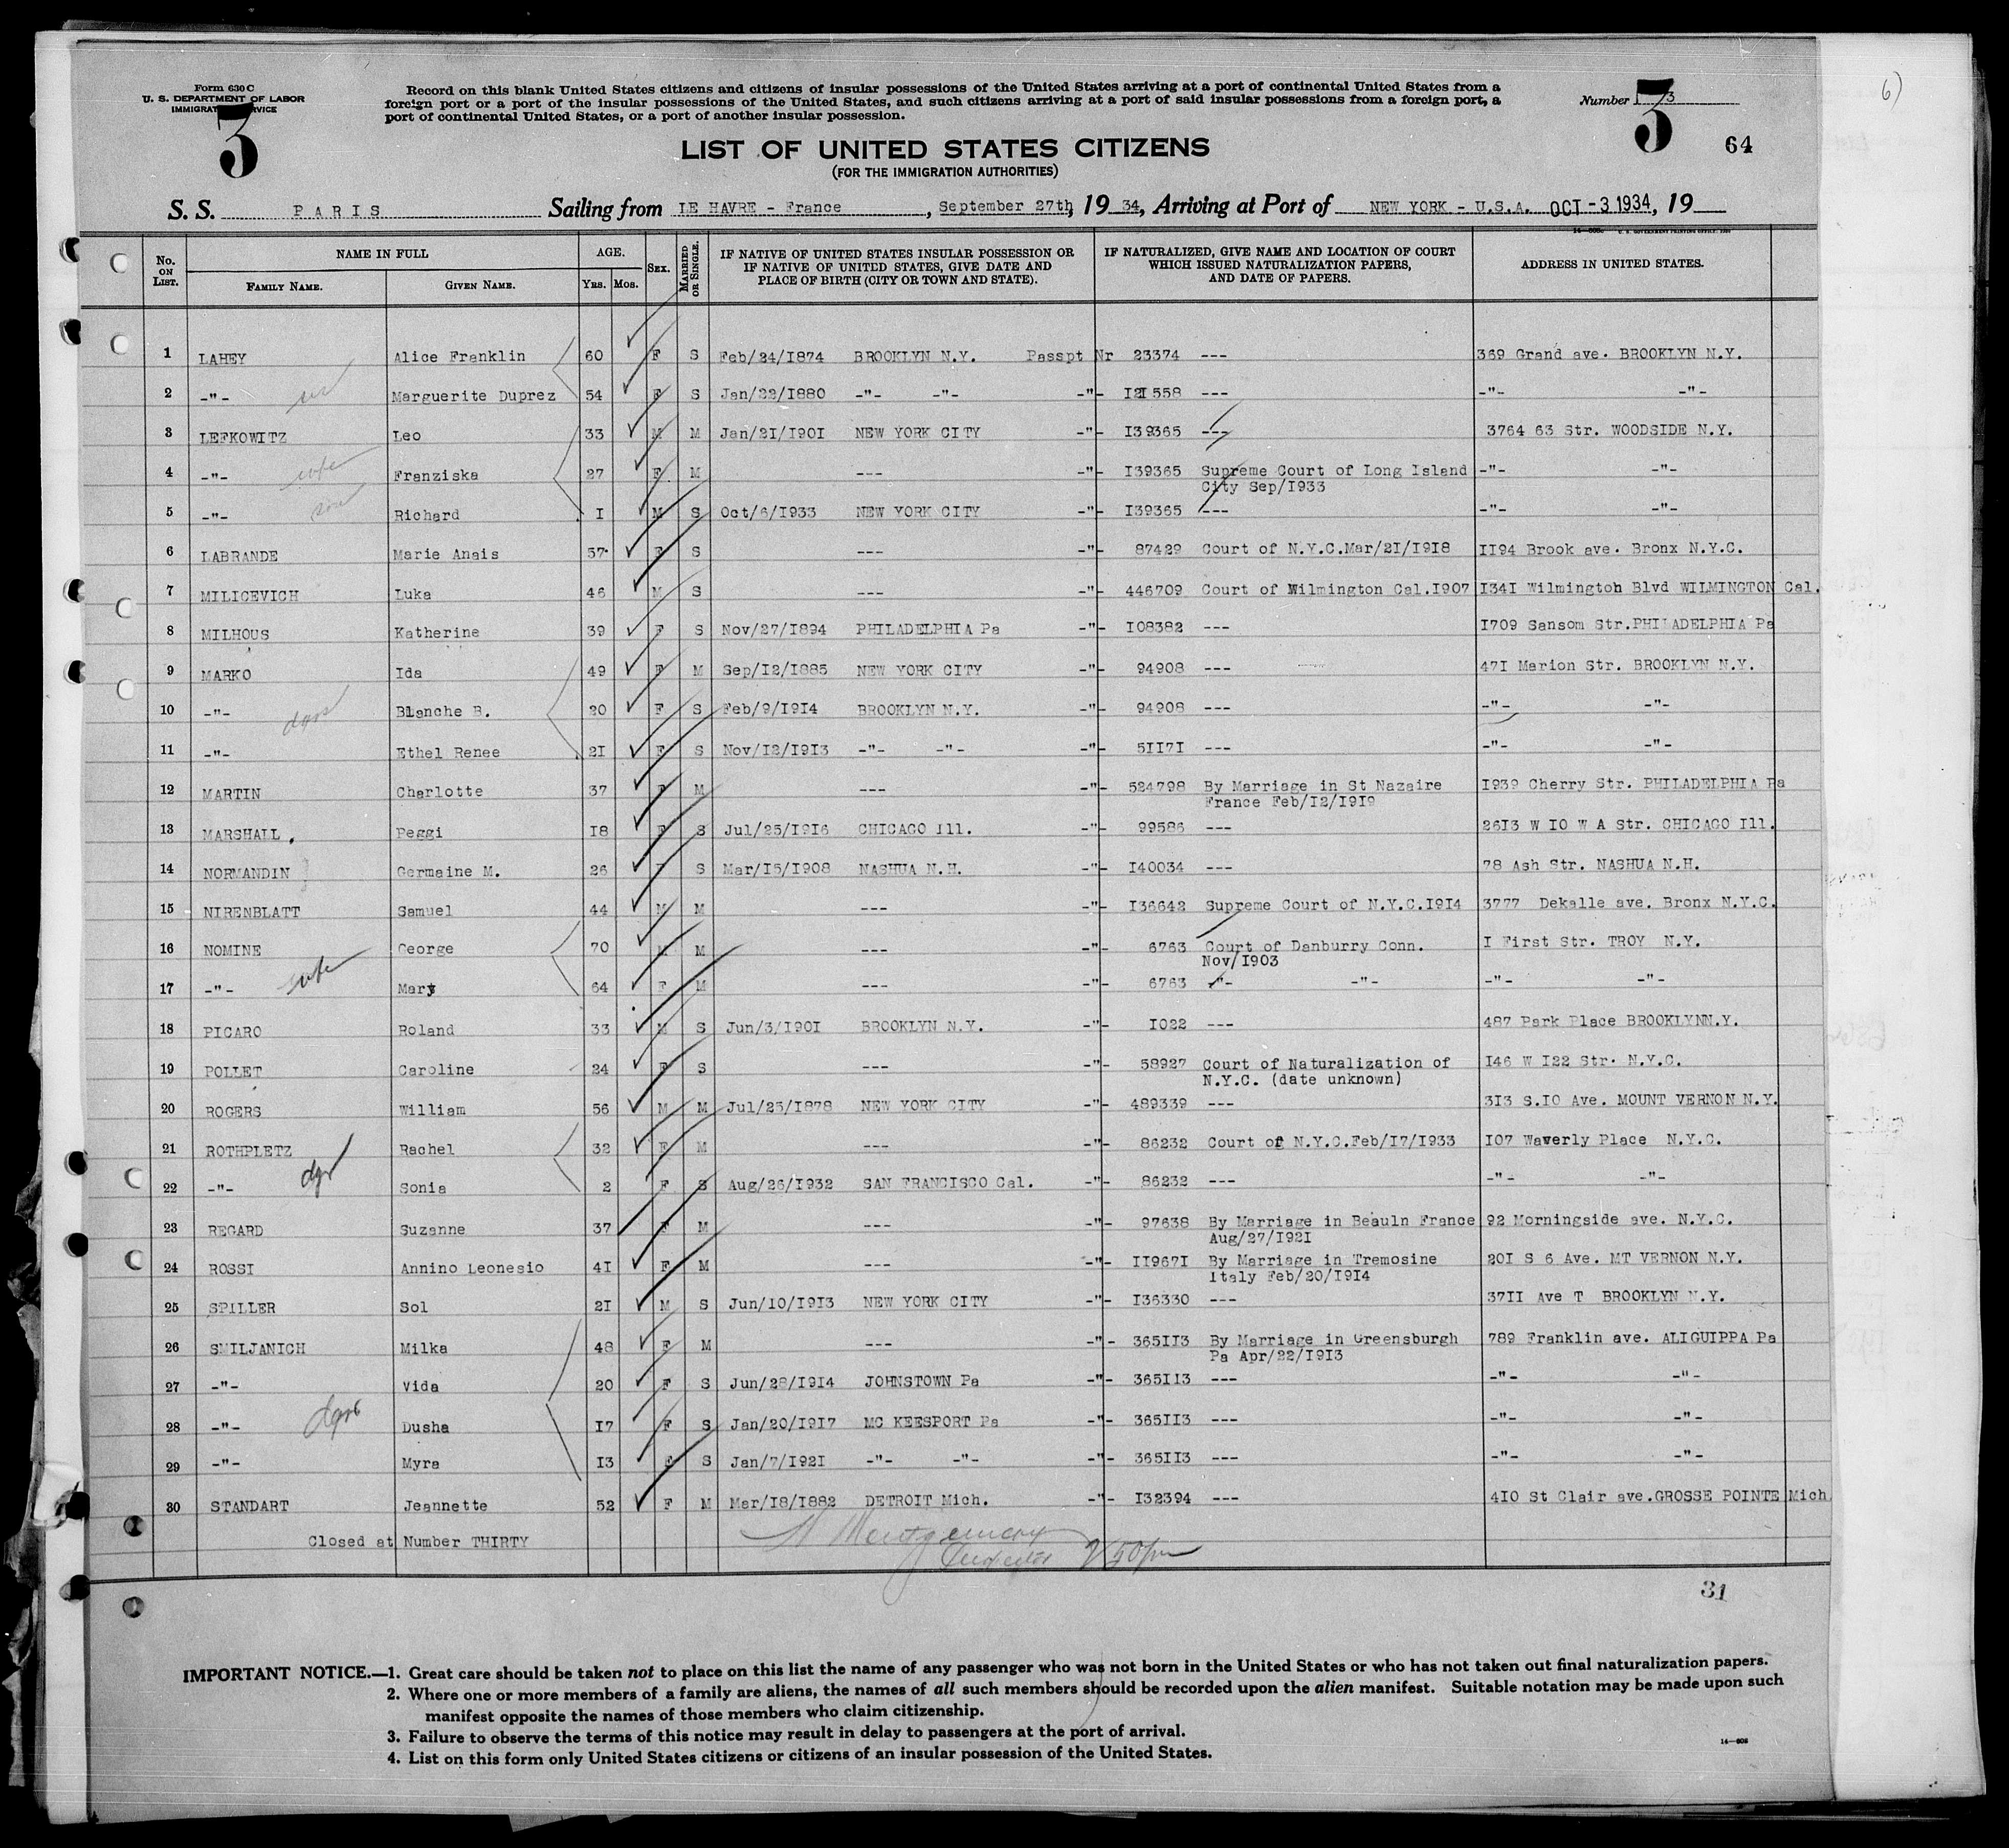 Form 630 C
U. S. DEPARTMENT OF LABOR
IMMIGRATION SERVICE
3
Record on this blank United States citizens and citizens of insular possessions of the United States arriving at a port of continental United States from a
foreign port or a port of the insular possessions of the United States, and such citizens arriving at a port of said insular possessions from a foreign port, a
port of continental United States, or a port of another insular possession.
Number 3
3
64
6)
LIST OF UNITED STATES CITIZENS
(FOR THE IMMIGRATION AUTHORITIES)
S. S. PARIS Sailing from LE HAVRE - France, September 27th, 19 34, Arriving at Port of NEW YORK - U.S.A. OCT -3 1934, 19
No. ON LIST. NAME IN FULL FAMILY NAME. GIVEN NAME. AGE. YRS. MOS. SEX. MARRIED OR SINGLE. IF NATIVE OF UNITED STATES INSULAR POSSESSION OR IF NATIVE OF UNITED STATES, GIVE DATE AND PLACE OF BIRTH (CITY OR TOWN AND STATE). IF NATURALIZED, GIVE NAME AND LOCATION OF COURT WHICH ISSUED NATURALIZATION PAPERS, AND DATE OF PAPERS. ADDRESS IN UNITED STATES.
1 LAHEY Alice Franklin 60 F S Feb/24/I874 BROOKLYN N.Y. Passpt Nr 23374 --- 369 Grand ave. BROOKLYN N.Y.
2 -"- Marguerite Duprez 54 F S Jan/22/I880 -"- -"- -"- I2I558 --- -"- -"-
3 LEFKOWITZ Leo 33 M M Jan/2I/I90I NEW YORK CITY -"- I39365 --- 3764 63 Str. WOODSIDE N.Y.
4 -"- wife Franziska 27 F M --- -"- I39365 Supreme Court of Long Island -"- -"-
City Sep/I933
5 -"- son Richard I M S Oct/6/I933 NEW YORK CITY -"- I39365 --- -"- -"-
6 LABRANDE Marie Anais 57 F S --- -"- 87429 Court of N.Y.C.Mar/2I/I9I8 II94 Brook ave. Bronx N.Y.C.
7 MILICEVICH Luka 46 M S --- -"- 446709 Court of Wilmington Cal.I907 I34I Wilmington Blvd WILMINGTON Cal.
8 MILHOUS Katherine 39 F S Nov/27/I894 PHILADELPHIA Pa -"- I08382 --- I709 Sansom Str.PHILADELPHIA Pa
9 MARKO Ida 49 F M Sep/I2/I885 NEW YORK CITY -"- 94908 --- 47I Marion Str. BROOKLYN N.Y.
10 -"- dgrs Blanche B. 20 F S Feb/9/I9I4 BROOKLYN N.Y. -"- 94908 --- -"- -"-
11 -"- Ethel Renee 2I F S Nov/I2/I9I3 -"- -"- -"- 5II7I --- -"- -"-
12 MARTIN Charlotte 37 F M --- -"- 524798 By Marriage in St Nazaire I939 Cherry Str. PHILADELPHIA Pa
France Feb/I2/I919
13 MARSHALL Peggi I8 F S Jul/25/I9I6 CHICAGO Ill. -"- 99586 --- 26I3 W I0 W A Str. CHICAGO Ill.
14 NORMANDIN Germaine M. 26 F S Mar/I5/I908 NASHUA N.H. -"- I40034 --- 78 Ash Str. NASHUA N.H.
15 NIRENBLATT Samuel 44 M M --- -"- I36642 Supreme Court of N.Y.C.I9I4 3777 Dekalle ave. Bronx N.Y.C.
16 NOMINE George 70 M M --- -"- 6763 Court of Danburry Conn. I First Str. TROY N.Y.
Nov/I903
17 -"- wife Mary 64 F M --- -"- 6763 -"- -"- -"- -"-
18 PICARO Roland 33 M S Jun/3/I90I BROOKLYN N.Y. -"- I022 --- 487 Park Place BROOKLYNN.Y.
19 POLLET Caroline 24 F S --- -"- 58927 Court of Naturalization of I46 W I22 Str. N.Y.C.
N.Y.C. (date unknown)
20 ROGERS William 56 M M Jul/25/I878 NEW YORK CITY -"- 489339 --- 3I3 S.I0 Ave. MOUNT VERNON N.Y.
21 ROTHPLETZ Rachel 32 F M --- -"- 86232 Court of N.Y.C.Feb/I7/I933 I07 Waverly Place N.Y.C.
22 -"- dgr Sonia 2 F S Aug/26/I932 SAN FRANCISCO Cal. -"- 86232 --- -"- -"-
23 REGARD Suzanne 37 F M --- -"- 97638 By Marriage in Beauln France 92 Morningside ave. N.Y.C.
Aug/27/I92I
24 ROSSI Annino Leonesio 4I F M --- -"- II967I By Marriage in Tremosine 20I S 6 Ave. MT VERNON N.Y.
Italy Feb/20/I9I4
25 SPILLER Sol 2I M S Jun/I0/I9I3 NEW YORK CITY -"- I36330 --- 37II Ave T BROOKLYN N.Y.
26 SMILJANICH Milka 48 F M --- -"- 365II3 By Marriage in Greensburgh 789 Franklin ave. ALIGUIPPA Pa
Pa Apr/22/I9I3
27 -"- Vida 20 F S Jun/28/I9I4 JOHNSTOWN Pa -"- 365II3 --- -"- -"-
28 -"- dgrs Dusha I7 F S Jan/20/I9I7 MC KEESPORT Pa -"- 365II3 --- -"- -"-
29 -"- Myra I3 F S Jan/7/I92I -"- -"- -"- 365II3 --- -"- -"-
30 STANDART Jeannette 52 F M Mar/I8/I882 DETROIT Mich. -"- I32394 --- 4I0 St Clair ave.GROSSE POINTE Mich
Closed at Number THIRTY
Montgomery
Inspector 50 pm
31
IMPORTANT NOTICE.—1. Great care should be taken not to place on this list the name of any passenger who was not born in the United States or who has not taken out final naturalization papers.
2. Where one or more members of a family are aliens, the names of all such members should be recorded upon the alien manifest. Suitable notation may be made upon such
manifest opposite the names of those members who claim citizenship.
3. Failure to observe the terms of this notice may result in delay to passengers at the port of arrival.
4. List on this form only United States citizens or citizens of an insular possession of the United States.